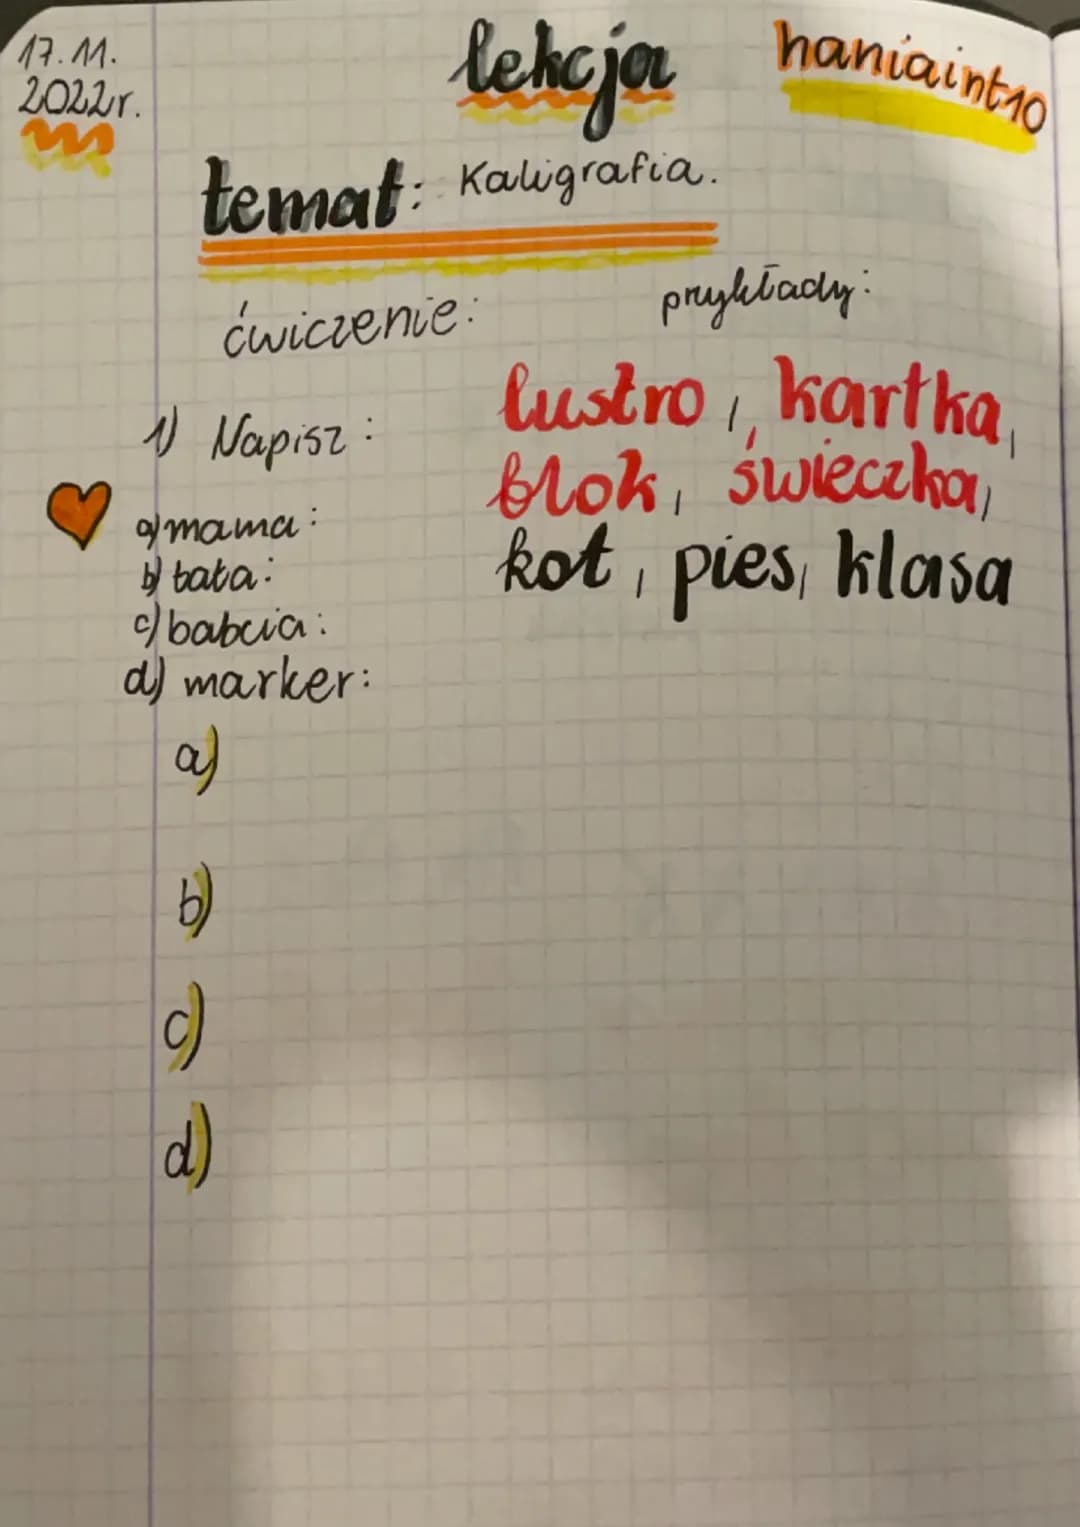 17.11.
2022r.
lekcja
haniaint10
temat: Kaligrafia.
ćwiczenie:
przykłady:
1) Napisz:
a) mama:
b) tata:
c) babcia:
d) marker:
lustro, kartka,
blok, świeczka,
kot, pies, klasa
a)
b)
c)
d)